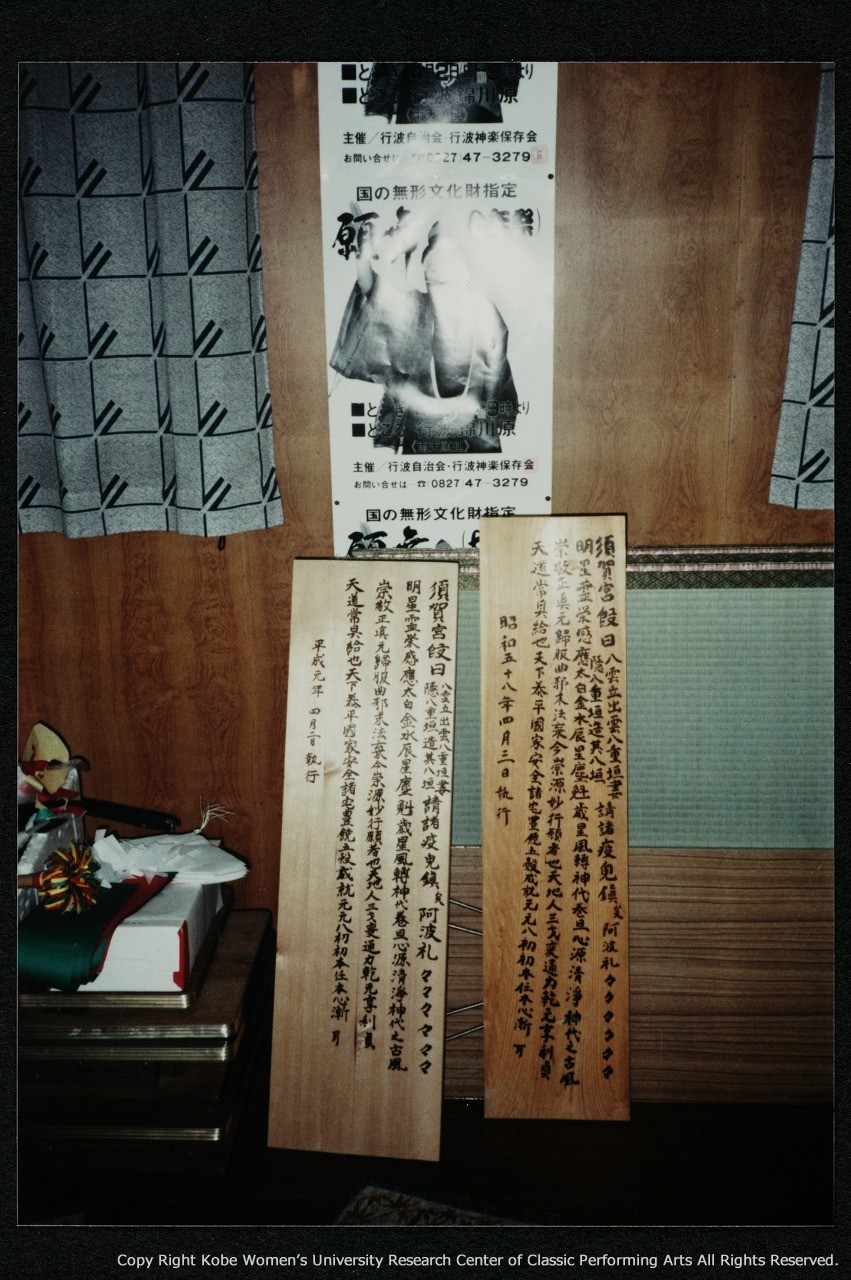 主催/行波自治会・行波神楽保存会
お問い合せは ☎(0827)47-3279
国の無形文化財指定
願
■ところ 行波錦川原
主催/行波自治会・行波神楽保存会
お問い合せは ☎0827 47-3279
国の無形文化財指定
願
須賀宮 曰 八雲立出雲八重垣妻
隠八重垣造其八垣 請諸疫鬼鎮 阿波礼 々々々々々々
明星霊栄感應太白金水辰星塵 歳星風轉神代巻旦心源清淨神代之古風
崇敬正真元歸服曲邪末法棄今崇源妙行願者也天地人三才変通力乾元亨利貞
天道常具給也天下泰平國家安全諸 豊饒五穀成就元元入初初本任本心
昭和五十八年四月三日 執行
須賀宮 曰 八雲立出雲八重垣妻
隠八重垣造其八垣 請諸疫鬼鎮 阿波礼 々々々々々々
明星霊栄感應太白金水辰星塵 歳星風轉神代巻旦心源清淨神代之古風
崇敬正真元歸服曲邪末法棄今崇源妙行願者也天地人三才変通力乾元亨利貞
天道常具給也天下泰平國家安全諸 豊饒五穀成就元元入初初本任本心
平成元年 四月二日 執行
Copy Right Kobe Women's University Research Center of Classic Performing Arts All Rights Reserved.